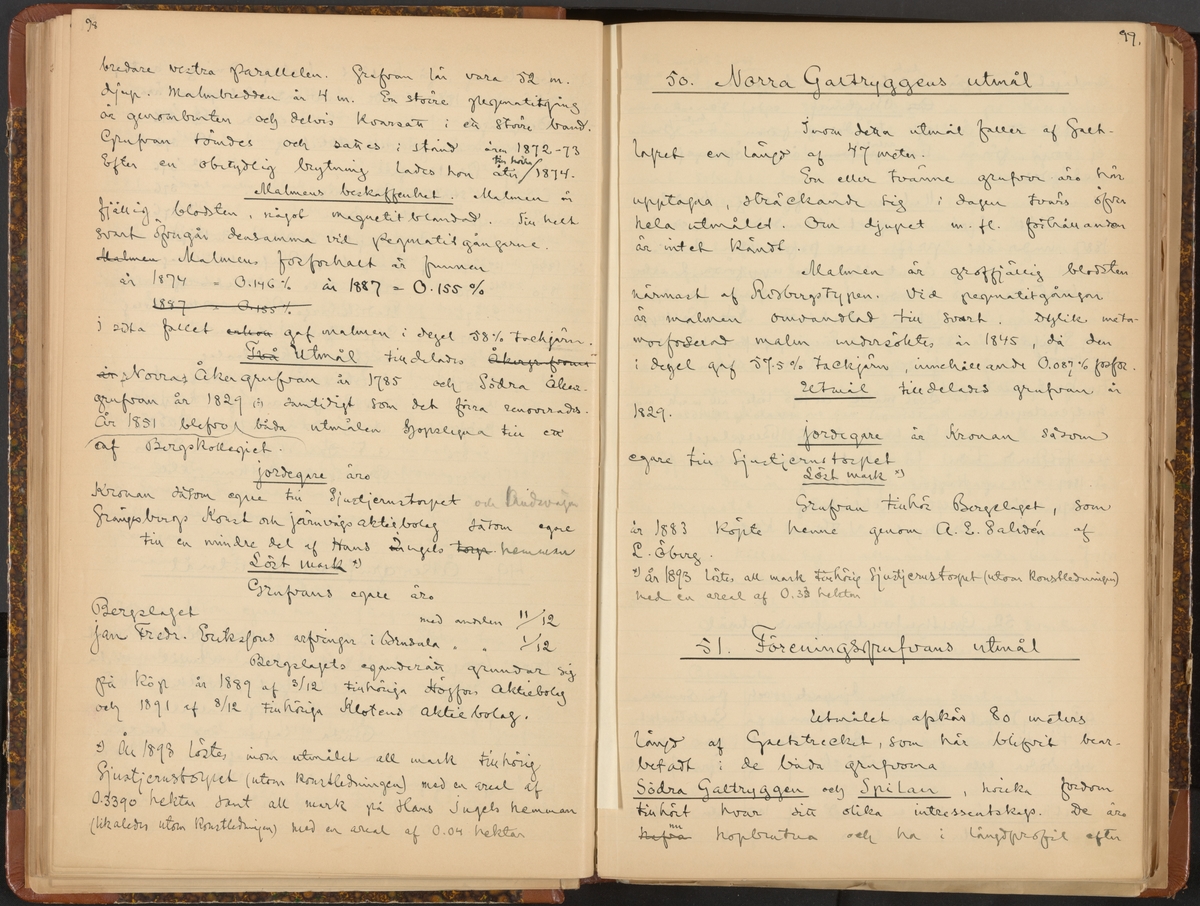 98
bredare vestra parallelen. Grufvan lär vara 52 m.
djup. Malmbredden är 4 m. En större pegmatitgång
är genombruten och delvis kvarsatt i ett större band.
Grufvan länsades och sattes i stånd åren 1872-73
Efter en obetydlig brytning lades hon åter 1874.
Malmens beskaffenhet. Malmen är
fjällig blodsten, något magnetitblandad. Till helt
svart öfvergår densamma vid pegmatitgångarne.
Malmen Malmens fosforhalt är funnen
år 1874 = 0.146 % år 1887 = 0.155 %
1887 = 0.155 %
i sista fallet gaf malmen i degel 58 % tackjärn.
Två Utmål tilldelades Åkergrufvan
är Norra Åkergrufvan år 1785 och Södra Åker-
grufvan år 1829 samtidigt som det förra renoverades.
År 1851 blefvo båda utmålen ihopslagna till ett
af Bergskollegiet.
Jordegare äro
Kronan såsom egare till Sjustjernstorpet och
Grängesbergs Konst och järnvägs aktiebolag såsom egare
till en mindre del af Hans Ingels torp hemman
Löst mark *)
Grufvans egare äro
Bergslaget med andelen 11/12
Jan Fredr. Ersksons arfvingar i " " 1/12
Bergslagets eganderätt grundar sig
på köp år 1889 af 3/12 tillhöriga Högfors Aktiebolag
och 1891 af 8/12 tillhöriga Klotens Aktiebolag.
*) År 1893 löstes inom utmålet all mark tillhörig
Sjustjernstorpet (utom konstledningen) med en areal af
0.3390 hektar samt all mark på Hans Ingels hemman
(likaledes utom konstledningen) med en areal af 0.04 hektar
99.
50. Norra Galtryggens utmål
Inom detta utmål faller af Galt-
lagret en längd af 47 meter.
En eller tvänne grufvor äro här
upptagna, sträckande sig i dagen tvärs öfver
hela utmålet. Om djupet m. fl. förhållanden
är intet kändt.
Malmen är groffjällig blodsten
närmast af Risbergstypen. Vid pegmatitgången
är malmen omvandlad till svart. Dylik meta-
morfoserad malm undersöktes år 1845, då den
i degel gaf 57.5 % tackjärn, innehållande 0.087 % fosfor.
Utmål tilldelades grufvan år
1829.
Jordegare är Kronan såsom
egare till Sjustjernstorpet
Löst mark *)
Grufvan tillhör Bergslaget, som
år 1883 köpte henne genom A. E. Salwén af
L. Öberg.
*) År 1893 löstes all mark tillhörig Sjustjernstorpet (utom konstledningen)
med en areal af 0.33 hektar
51. Föreningsgrufvans utmål
Utmålet afskär 80 meters
längd af Galtstrecket, som här blifvit bear-
betadt i de båda grufvorna
Södra Galtryggen och Spilan, hvilka fordom
tillhört hvar sitt olika intressentskap. De äro
nu hopbrutna och ha i längdprofil efter